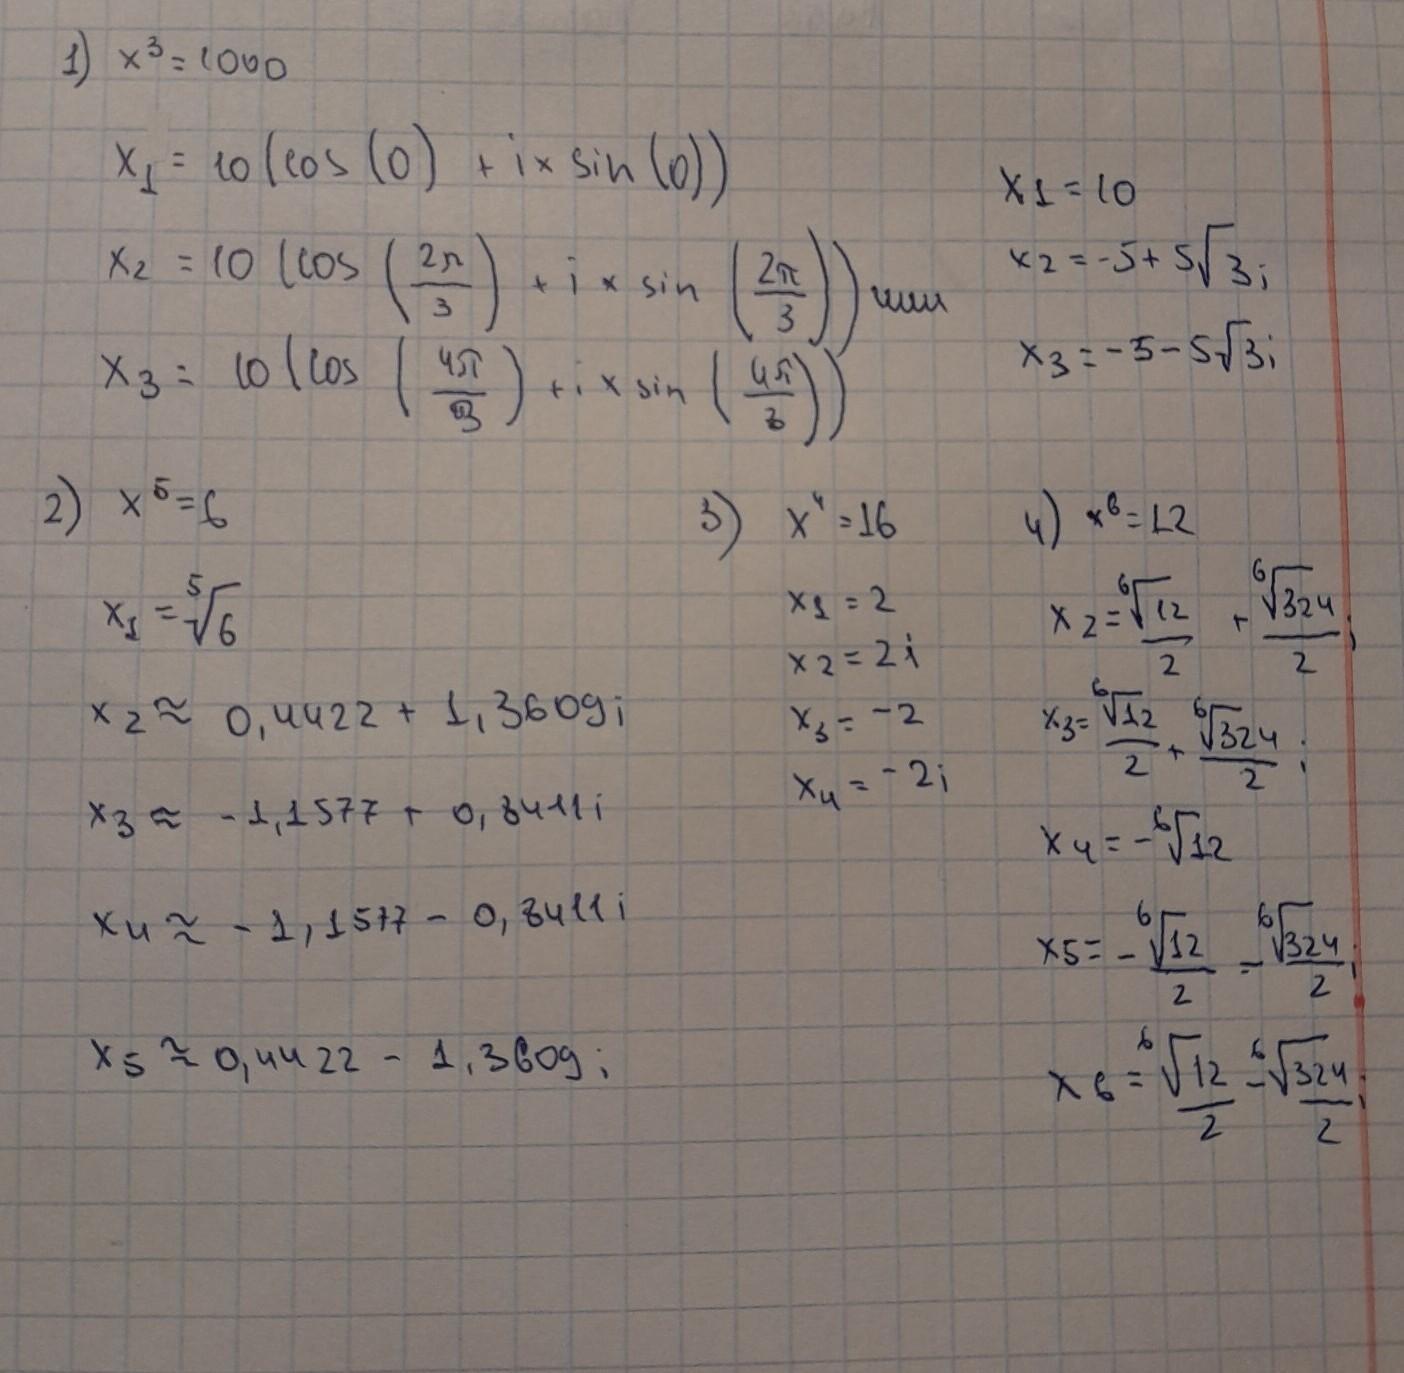 1) x³=1000
x₁ = 10(cos(0) + i × sin(0))
x₂ = 10(cos(2π/3) + i × sin(2π/3)) или
x₃ = 10(cos(4π/3) + i × sin(4π/3))
x1 = 10
x2 = -5 + 5√3i
x3 = -5 - 5√3i
2) x⁵=6
x₁ = ⁵√6
x₂ ≈ 0,4422 + 1,3609i
x₃ ≈ -1,1577 + 0,8411i
x₄ ≈ -1,1577 - 0,8411i
x₅ ≈ 0,4422 - 1,3609i
3) x⁴=16
x₁ = 2
x₂ = 2i
x₃ = -2
x₄ = -2i
4) x⁶=12
x₂ = ⁶√12/2 + ⁶√324/2 i
x₃ = ⁶√12/2 + ⁶√324/2 i
x₄ = -⁶√12
x₅ = -⁶√12/2 - ⁶√324/2 i
x₆ = ⁶√12/2 - ⁶√324/2 i